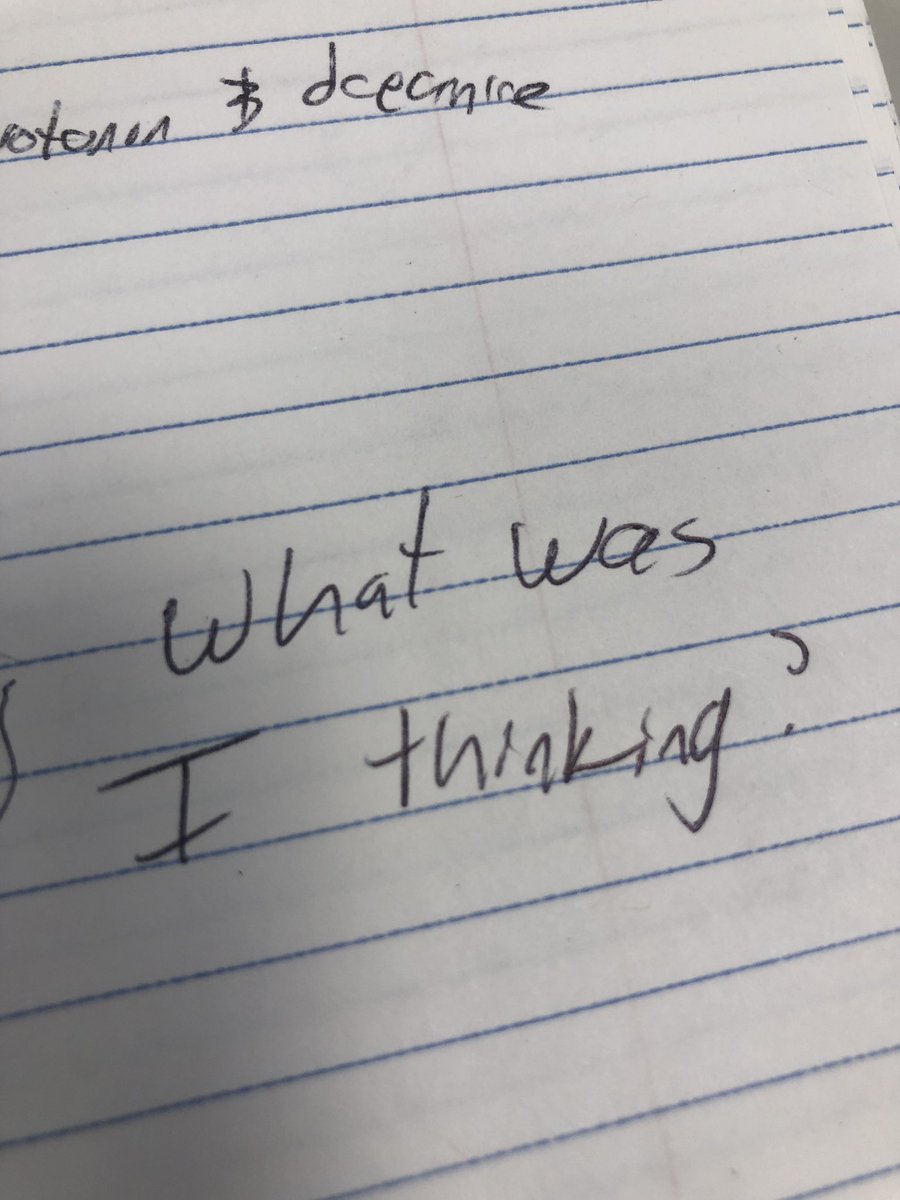 rotonin & dcecmine
What was
I thinking?